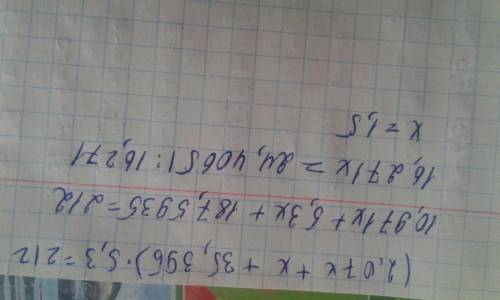 (2,07x + x + 35,395)·5,3=212
10,971x+5,3x+187,5935=212
16,271x = 24,4065:16,271
x=1,5